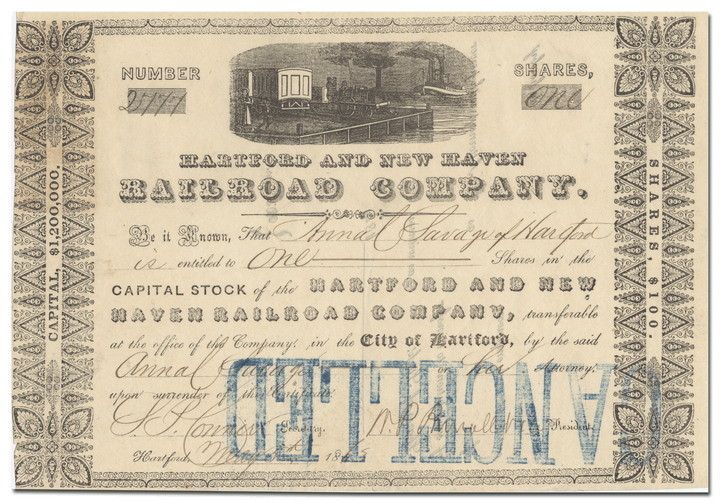 NUMBER
SHARES,
ONE
HARTFORD AND NEW HAVEN
RAILROAD COMPANY.
Be it Known, That Anna C Savage of Hartford
is entitled to One Shares in the
CAPITAL STOCK of the HARTFORD AND NEW
HAVEN RAILROAD COMPANY, transferable
at the office of the Company, in the City of Hartford, by the said
Anna C Savage or her Attorney,
upon surrender of this Certificate.
Secretary. President.
Hartford, 184
CAPITAL, $1,200,000.
SHARES, $100.
CANCELLED